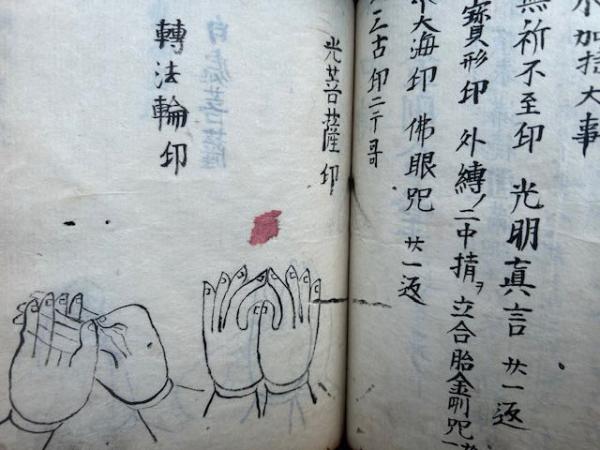 加持大事
無所不至印 光明真言 廿一返
寳形印 外縛ノ二中指ヲ立合胎金剛咒
大海印 佛眼咒 廿一返
三古印二テ哥
光菩薩印
轉法輪印